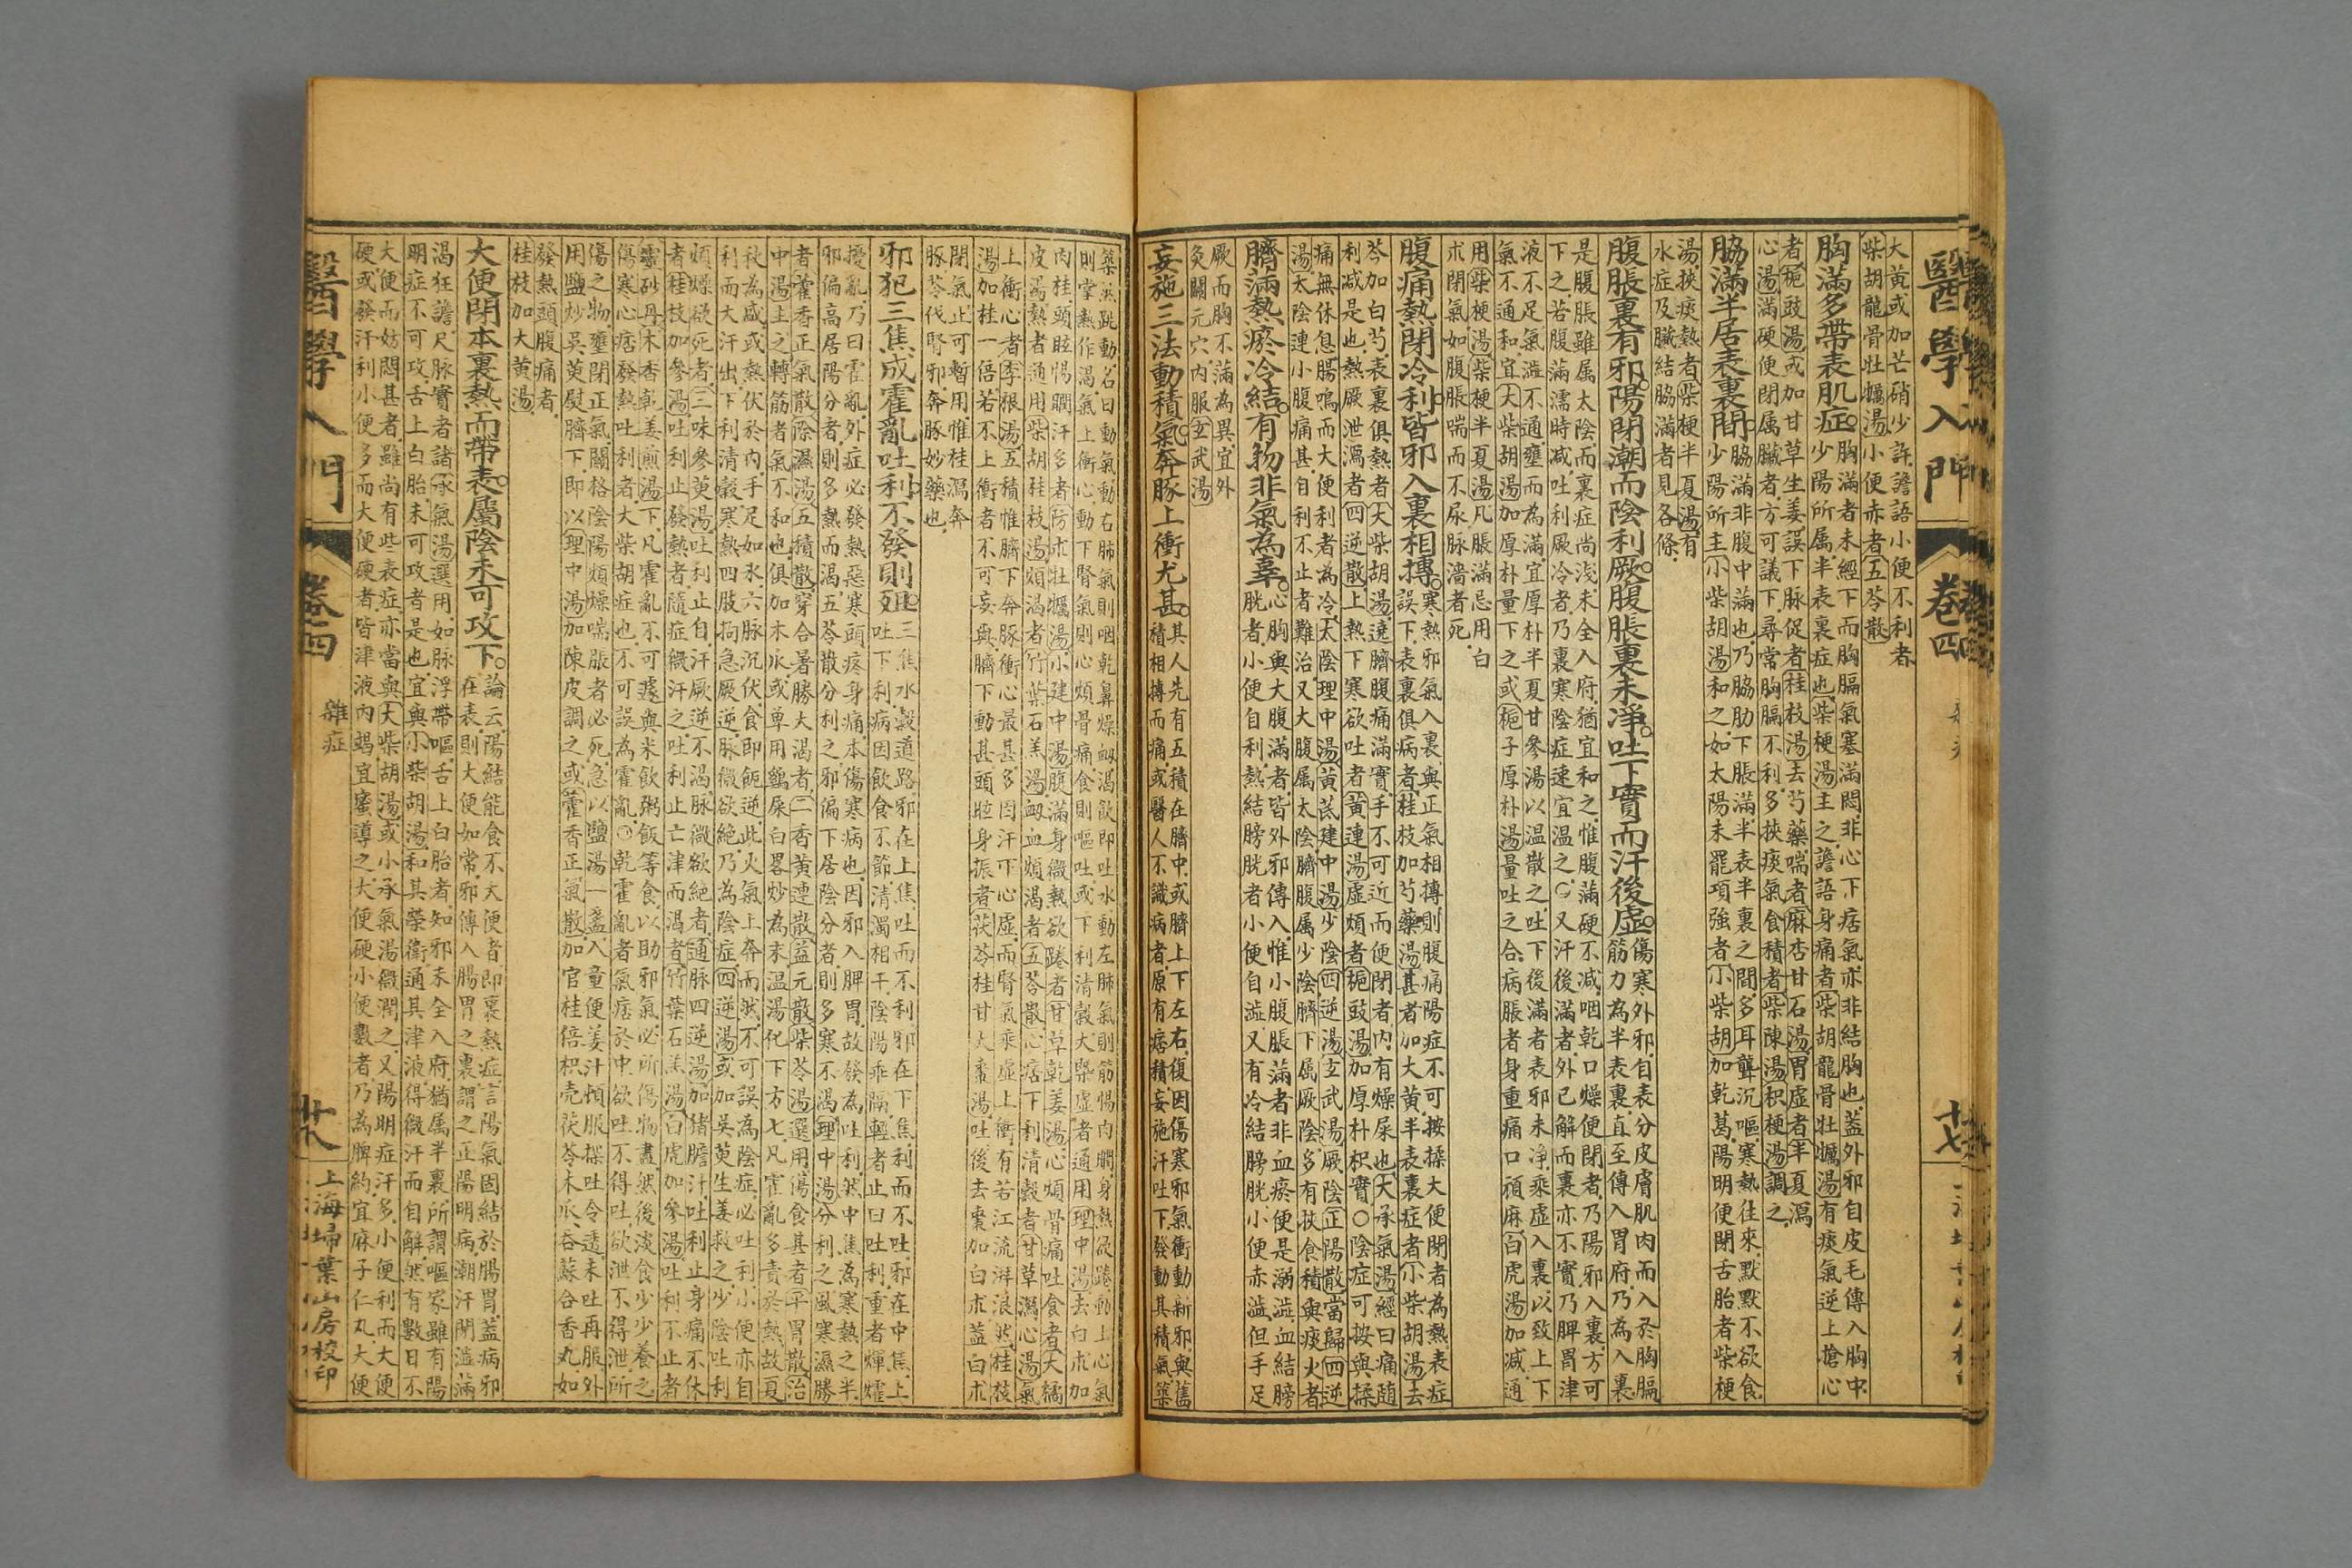 醫學入門 卷四
大黃或加芒硝少許譫語小便不利者
柴胡龍骨牡蠣湯小便赤者五苓散
胸滿多帶表肌症。胸滿者未經下而胸膈氣塞滿悶非心下痞氣亦非結胸也蓋外邪自皮毛傳入胸中
少陽所屬半表裏症也柴梗湯主之譫語身痛者柴胡龍骨牡蠣湯有痰氣逆上搶心
者梔豉湯或加甘草生姜誤下脉促者桂枝湯去芍藥喘者麻杏甘石湯胃虛者半夏瀉
心湯滿硬便閉属臟者方可議下尋常胸膈不利多挾痰氣食積者柴陳湯枳梗湯調之
脇滿半居表裏間。脇滿非腹中滿也乃脇肋下脹滿半表半裏之間多耳聾沉嘔寒熱往來默默不欲食
少陽所主小柴胡湯和之如太陽未罷項強者小柴胡加乾葛陽明便閉舌胎者柴梗
湯挾痰熱者柴梗半夏湯有
水症及臟結脇滿者見各條
腹脹裏有邪。陽閉潮而陰利厥。腹脹裏未淨。吐下實而汗後虛。傷寒外邪自表分皮膚肌肉而入於胸膈
筋力為半表裏直至傳入胃府乃為入裏
是腹脹雖属太陰而裏症尚淺未全入府猶宜和之惟腹滿硬不減咽乾口燥便閉者乃陽邪入裏方可
下之若腹滿濡時減吐利厥冷者乃裏寒陰症速宜温之○又汗後滿者外已解而裏亦不實乃脾胃津
液不足氣澁不通壅而為滿宜厚朴半夏甘參湯以温散之吐下後滿者表邪未凈乘虛入裏以致上下
氣不通和宜大柴胡湯加厚朴量下之或梔子厚朴湯量吐之合病脹者身重痛口頑麻白虎湯加减通
用柴梗湯柴梗半夏湯凡脹滿忌用白
朮閉氣如腹脹喘而不尿脉濇者死
腹痛熱閉冷利。皆邪入裏相搏。寒熱邪氣入裏與正氣相搏則腹痛陽症不可按揉大便閉者為熱表症
誤下表裏俱病者桂枝加芍藥湯甚者加大黃半表裏症者小柴胡湯去
芩加白芍表裏俱熱者大柴胡湯遶臍腹痛滿實手不可近而便閉者內有燥屎也大承氣湯經曰痛隨
利減是也熱厥泄瀉者四逆散上熱下寒欲吐者黃連湯虛煩者梔豉湯加厚朴枳實○陰症可按與揉
痛無休息腸鳴而大便利者為冷太陰理中湯黃芪建中湯少陰四逆湯玄武湯厥陰正陽散當歸四逆
湯太陰連小腹痛甚自利不止者難治又大腹属太陰臍腹属少陰臍下属厥陰多有挾食積與痰火者
臍滿熱瘀冷結。有物非氣為辜。心胸與大腹滿者皆外邪傳入惟小腹脹滿者非血瘀便是溺澁血結膀
胱者小便自利熱結膀胱者小便自澁又有冷結膀胱小便赤澁但手足
厥而胸不滿為異宜外
灸關元穴內服玄武湯
妄施三法動積氣。奔豚上衝尤甚。其人先有五積在臍中或臍上下左右復因傷寒邪氣衝動新邪與舊
積相搏而痛或醫人不識病者原有痞積妄施汗吐下發動其積氣築
築然跳動名曰動氣動右肺氣則咽乾鼻燥衂渴飲即吐水動左肺氣則筋惕肉瞤身熱欲踡動上心氣
則掌熱作渴氣上衝心動下腎氣則心煩骨痛食則嘔吐或下利清穀大槩虛者通用理中湯去白朮加
肉桂頭眩惕瞤汗多者防朮牡蠣湯小建中湯腹滿身微熱欲踡者甘草乾姜湯心煩骨痛吐食者大橘
皮湯熱者通用柴胡桂枝湯煩渴者竹葉石羔湯衂血煩渴者五苓散心痞下利清穀者甘草瀉心湯氣
上衝心者李根湯五積惟臍下奔豚衝心最甚多因汗下心虛而腎氣乘虛上衝有若江流湃浪然桂枝
湯加桂一倍若不上衝者不可妄與臍下動甚頭眩身振者茯苓桂甘大棗湯吐後去棗加白朮蓋白朮
閉氣止可暫用惟桂瀉奔
豚苓伐腎邪奔豚妙藥也
邪犯三焦成霍亂。吐利不發則殂。三焦水穀道路邪在上焦吐而不利邪在下焦利而不吐邪在中焦上
吐下利病因飲食不節清濁相干陰陽乖隔輕者止曰吐利重者煇㸌
擾亂乃曰霍亂外症必發熱惡寒頭疼身痛本傷寒病也因邪入脾胃故發為吐利然中焦為寒熱之半
邪偏高居陽分者則多熱而渴五苓散分利之邪偏下居陰分者則多寒不渴理中湯分利之風寒濕勝
者藿香正氣散除濕湯五積散穿合暑勝大渴者二香黃連散益元散柴苓湯選用傷食甚者平胃散治
中湯主之轉筋者氣不和也俱加木瓜或单用雞屎白畧炒為末温湯化下方七凡霍亂多責於熱故夏
秋為咸或熱伏於內手足如氷六脉沉伏食即飽逆此火氣上奔而然不可誤為陰症必吐利小便亦自
利而大汗出下利清穀寒熱四肢拘急厥逆脉微欲絶乃為陰症四逆湯或加吳萸生姜救之少陰吐利
煩燥欲死者三味參萸湯吐利止自汗厥逆不渴脉微欲絶者通脉四逆湯加猪膽汁吐利止身痛不休
者桂枝加參湯吐利止發熱者隨症微汗之吐利止亡津而渴者竹葉石羔湯白虎加參湯吐利不止者
靈砂丹木香乾姜煎湯下凡霍亂不可遽與米飲粥飯等食以助邪氣必所傷物盡然後淡食少少養之
傷寒心痞發熱吐利者大柴胡症也不可誤為霍亂○乾霍亂者氣痞於中欲吐不得吐欲泄不得泄所
傷之物壅閉正氣關格陰陽煩燥喘脹者必死急以鹽湯一盞入童便姜汁頓服探吐令透未吐再服外
用鹽炒吳萸熨臍下即以理中湯加陳皮調之或藿香正氣散加官桂倍枳壳茯苓木瓜吞蘇合香丸如
發熱頭腹痛者
桂枝加大黃湯
大便閉本裏熱而帶表。屬陰未可攻下。論云陽結能食不大便者即裏熱症言陽氣固結於腸胃蓋病邪
在表則大便如常邪傳入腸胃之裏謂之正陽明病潮汗閉澁滿
渴狂譫尺脉實者諸承氣湯選用如脉浮帶嘔舌上白胎者知邪未全入府猶属半裏所謂嘔家雖有陽
明症不可攻舌上白胎未可攻者是也宜與小柴胡湯和其榮衛通其津液得微汗而自解然有數日不
大便而妨悶甚者雖尚有些表症亦當與大柴胡湯或小承氣湯微潤之又陽明症汗多小便利而大便
硬或發汗利小便多而大便硬者皆津液內竭宜蜜導之大便硬小便數者乃為脾約宜麻子仁丸大便
醫學入門 卷四 雜症 廿八 上海埽葉山房校印